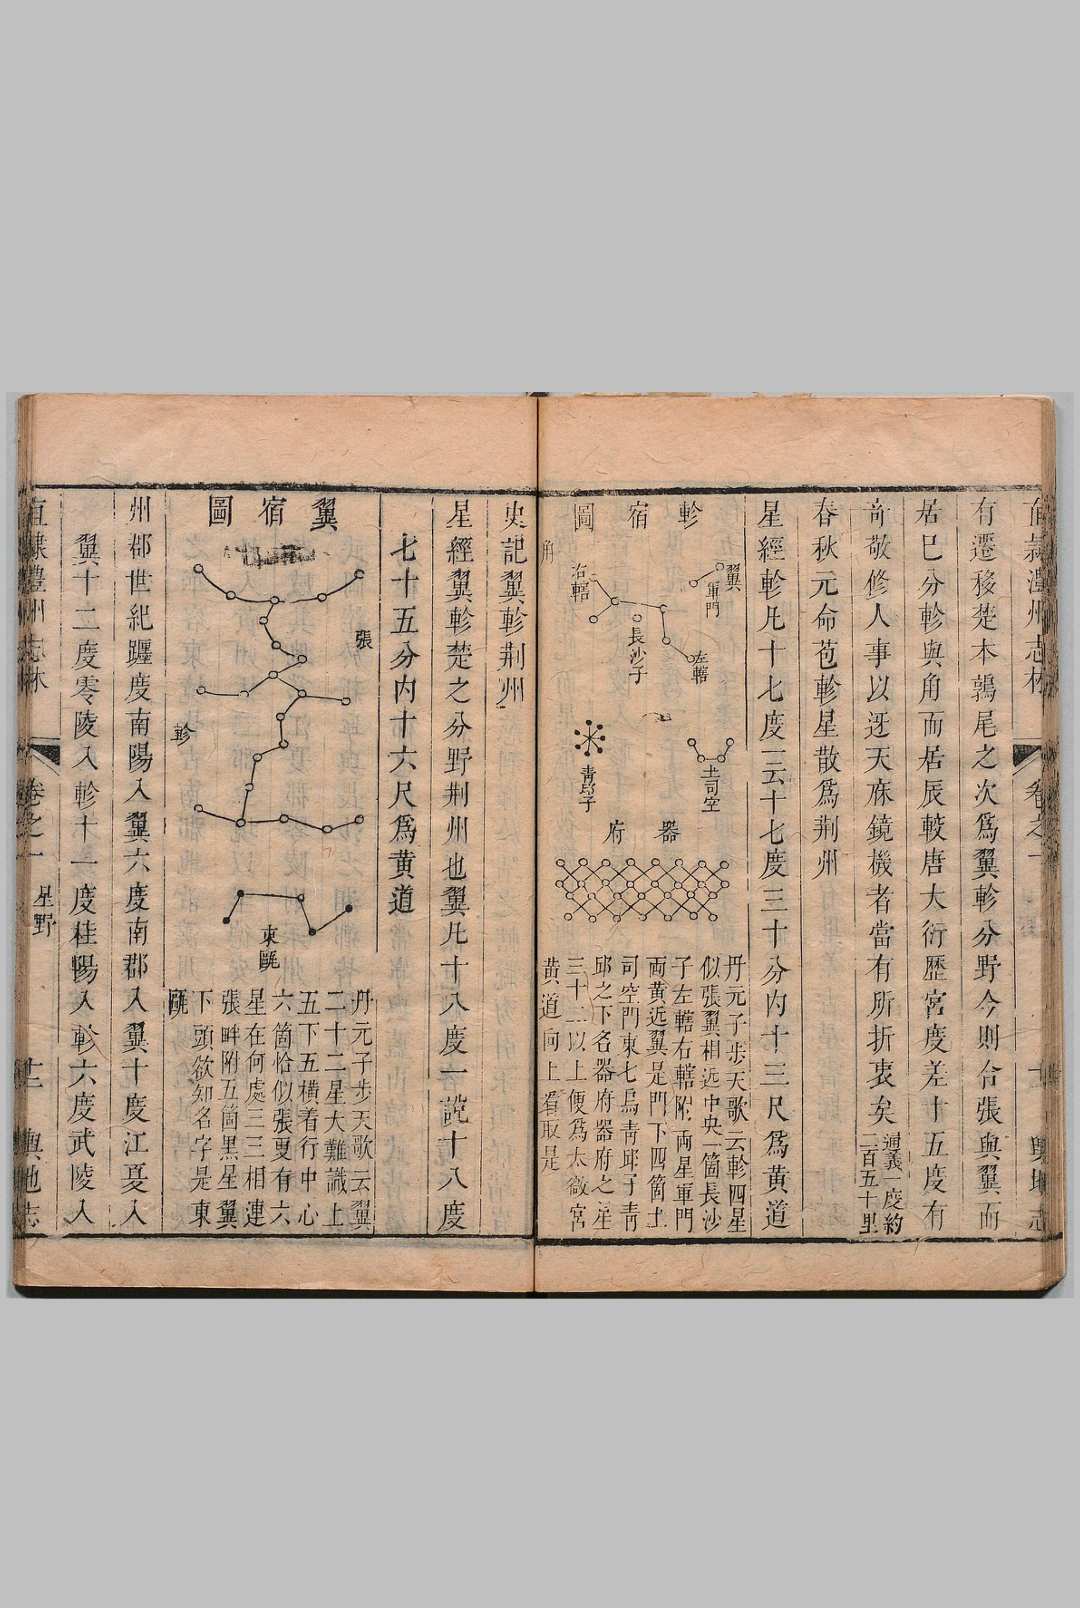 直隸澧州志林
卷之一
十一
輿地志
有遷移楚本鶉尾之次爲翼軫分野今則合張與翼而
居巳分軫與角而居辰較唐大衍歷宮度差十五度有
奇敬修人事以迓天庥鏡機者當有所折衷矣
通義一度約
二百五十里
春秋元命苞軫星散爲荆州
星經軫凡十七度一云十七度三十分内十三尺爲黄道
軫宿圖
翼
軍門
左轄
右轄
角
長沙子
土司空
青邱子
器府
丹元子步天歌云軫四星
似張翼相近中央一箇長沙
子左轄右轄附兩星軍門
兩黄近翼是門下四箇土
司空門東七烏青邱子青
邱之下名器府器府之星
三十二以上便爲太微宮
黄道向上看取是
史記翼軫荆州
星經翼軫楚之分野荆州也翼凡十八度一說十八度
七十五分内十六尺爲黄道
翼宿圖
張
軫
東甌
丹元子步天歌云翼
二十二星大難識上
五下五橫着行中心
六箇恰似張更有六
星在何處三三相連
張畔附五箇黑星翼
下頭欲知名字是東
甌
州郡世紀躔度南陽入翼六度南郡入翼十度江夏入
翼十二度零陵入軫十一度桂陽入軫六度武陵入
直隸澧州志林
卷之一
星野
十二
輿地志